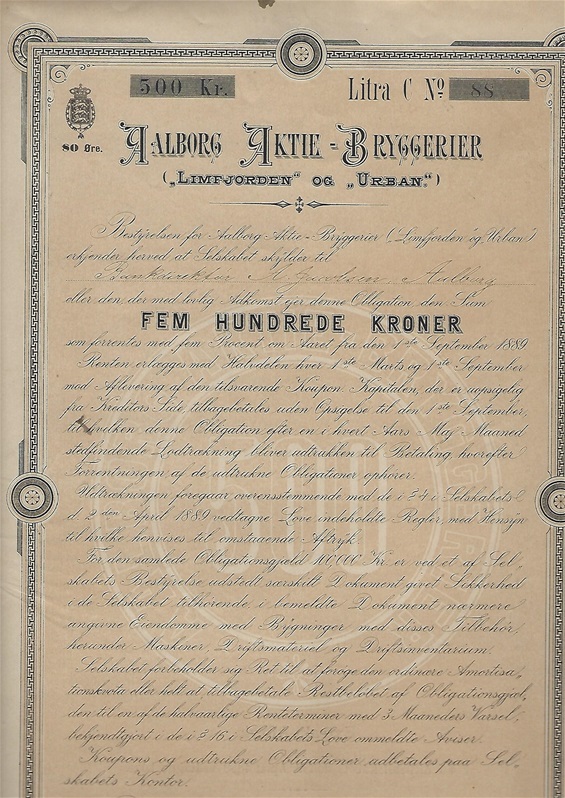 500 Kr.
Litra C № 88
80 Øre.
AALBORG AKTIE-BRYGGERIER
(„LIMFJORDEN“ OG „URBAN.“)
Bestyrelsen for Aalborg Aktie-Bryggerier („Limfjorden og Urban“)
erkjender herved at Selskabet skylder til
Bankdirektør Jacobsen, Aalborg
eller den, der med lovlig Adkomst ejer denne Obligation den Sum
FEM HUNDREDE KRONER
som forrentes med fem Procent om Aaret fra den 1ste September 1889
Renten erlægges med Halvdelen hver 1ste Marts og 1ste September
mod Aflevering af den tilsvarende Koupon. Kapitalen, der er uopsigelig
fra Kreditors Side, tilbagebetales uden Opsigelse til den 1ste September,
til hvilken denne Obligation efter en i hvert Aars Maj Maaned
stedfindende Lodtrækning bliver udtrukken til Betaling, hvorefter
Forrentningen af de udtrukne Obligationer ophører.
Udtrækningen foregaar overensstemmende med de i § 4 i Selskabets
d. 2den April 1889 vedtagne Love indeholdte Regler, med Hensyn
til hvilke henvises til omstaaende Aftryk.
For den samlede Obligationsgjæld 100,000 Kr. er ved et af Sel-
skabets Bestyrelse udstedt særskilt Dokument givet Sikkerhed
i de Selskabet tilhørende, i bemeldte Dokument nærmere
angivne Eiendomme med Bygninger med disses Tilbehør,
herunder Maskiner, Driftsmateriel og Driftsinventarium.
Selskabet forbeholder sig Ret til at forøge den ordinære Amortisa-
tionskvota eller helt at tilbagebetale Restbeløbet af Obligationsgjæl-
den til en af de halvaarlige Renteterminer med 3 Maaneders Varsel,
bekjendtgjort i de i § 16 i Selskabets Love ommeldte Aviser.
Koupons og udtrukne Obligationer udbetales paa Sel-
skabets Kontor.